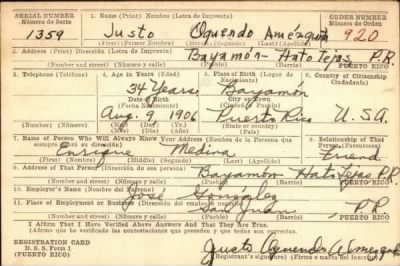 SERIAL NUMBER 1. Name (Print) Nombre (Letra de Imprenta) ORDER NUMBER
Número de Serie Número de Orden
1359 Justo Oquendo Amézquita 920
(First) (Primer Nombre) (Middle) (Segundo) (Last) (Apellido)
2. Address (Print) Dirección (Letra de Imprenta)
Bayamón - Hato Tejas P.R.
(Number and Street) (Town) (Pueblo) (Barrio) PUERTO RICO
3. Telephone (Teléfono) 4. Age in Years (Edad) 5. Place of Birth (Lugar de Nacimiento) 6. Country of Citizenship (Ciudadanía)
34 Years Bayamón
Date of Birth (Fecha Nacimiento) City or Town (Ciudad o Pueblo)
Aug. 9 1906 Puerto Rico U.S.A.
State or country (País)
7. Name of Person Who Will Always Know Your Address (Nombre de la persona que siempre sabrá su dirección) 8. Relationship of That Person (Parentesco)
Enrique Medina Friend
(First) (Nombre) (Middle) (Segundo) (Last) (Apellido)
9. Address of That Person (Dirección de esa persona)
Bayamón Hato Tejas P.R.
(Pueblo) (Barrio) PUERTO RICO
10. Employer's Name (Nombre del Patrono)
José González
11. Place of Employment or Business
San Juan P.R.
(Pueblo) (Barrio) PUERTO RICO
I Affirm That I Have Verified Above Answers and That They Are True.
Afirmo que he verificado las contestaciones que preceden y que todas son correctas.
REGISTRATION CARD
D. S. S. Form 1
(PUERTO RICO)
Justo Oquendo Amezquita
Registrant's signature